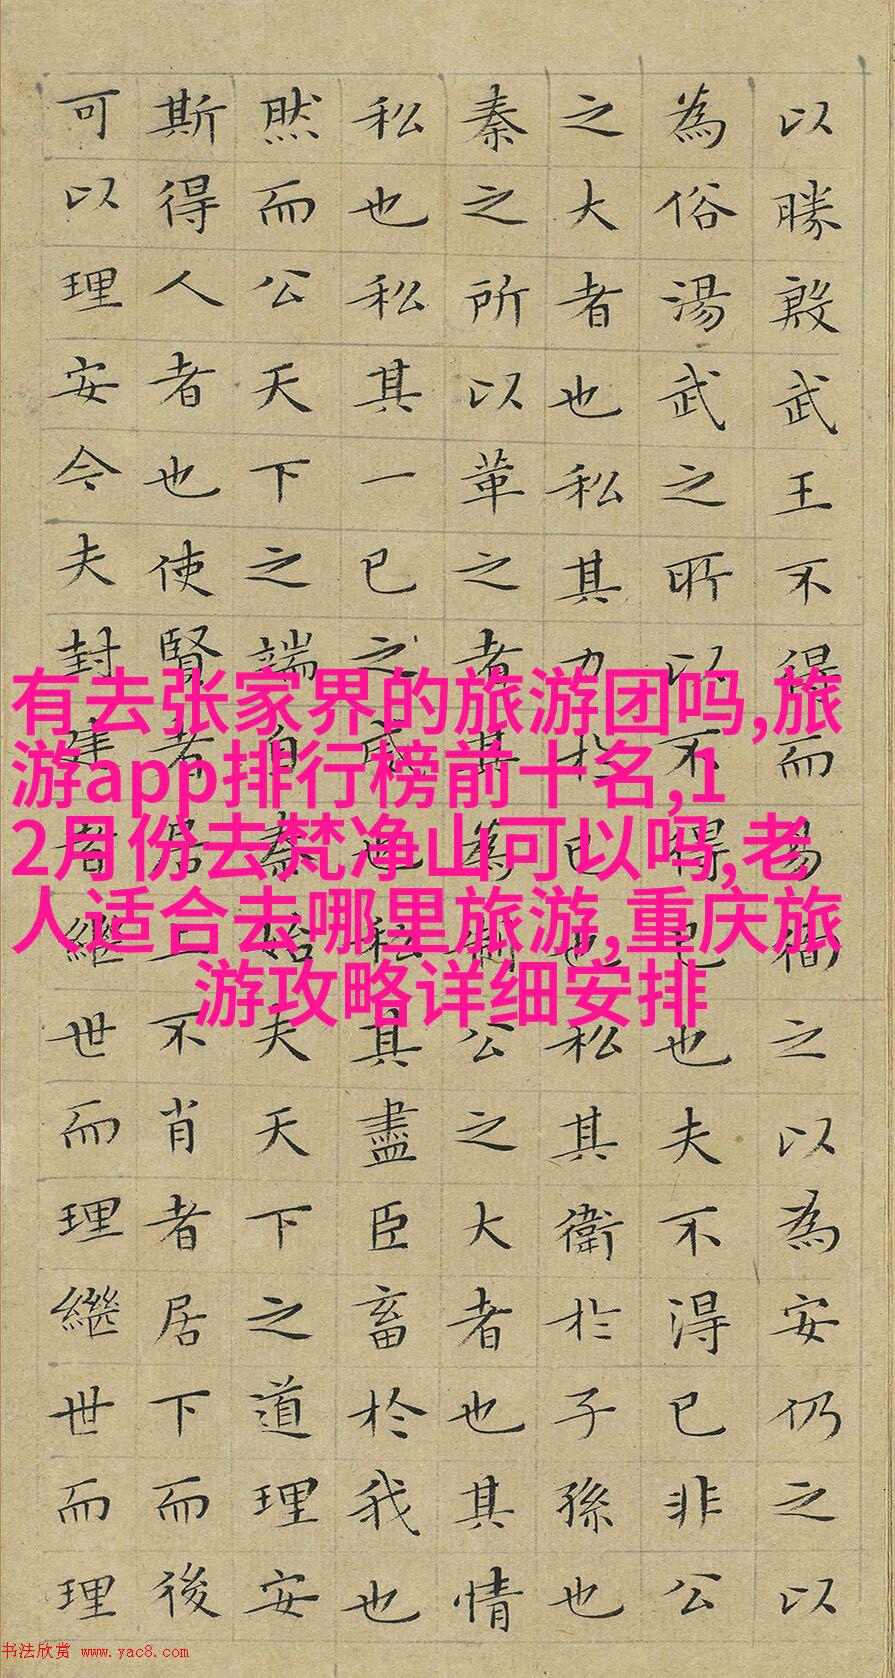 以勝殷武王不得而易徇之以為安仍之以
為俗湯武之所以不得已也夫不得已非公
之大者也私其力於已也私其衛於子孫也
秦之所以革之者其為制公之大者也其情
私也私其一已之威也私其盡臣畜於我也
然而公天下之端自秦始夫天下之道理安
斯得人者也使賢者居上不肖者居下而後
可以理安今夫封建者繼世而理繼世而理
有去张家界的旅游团吗,旅
游app排行榜前十名,1
2月份去梵净山可以吗,老
人适合去哪里旅游,重庆旅
游攻略详细安排
书法欣赏 www.yac8.com